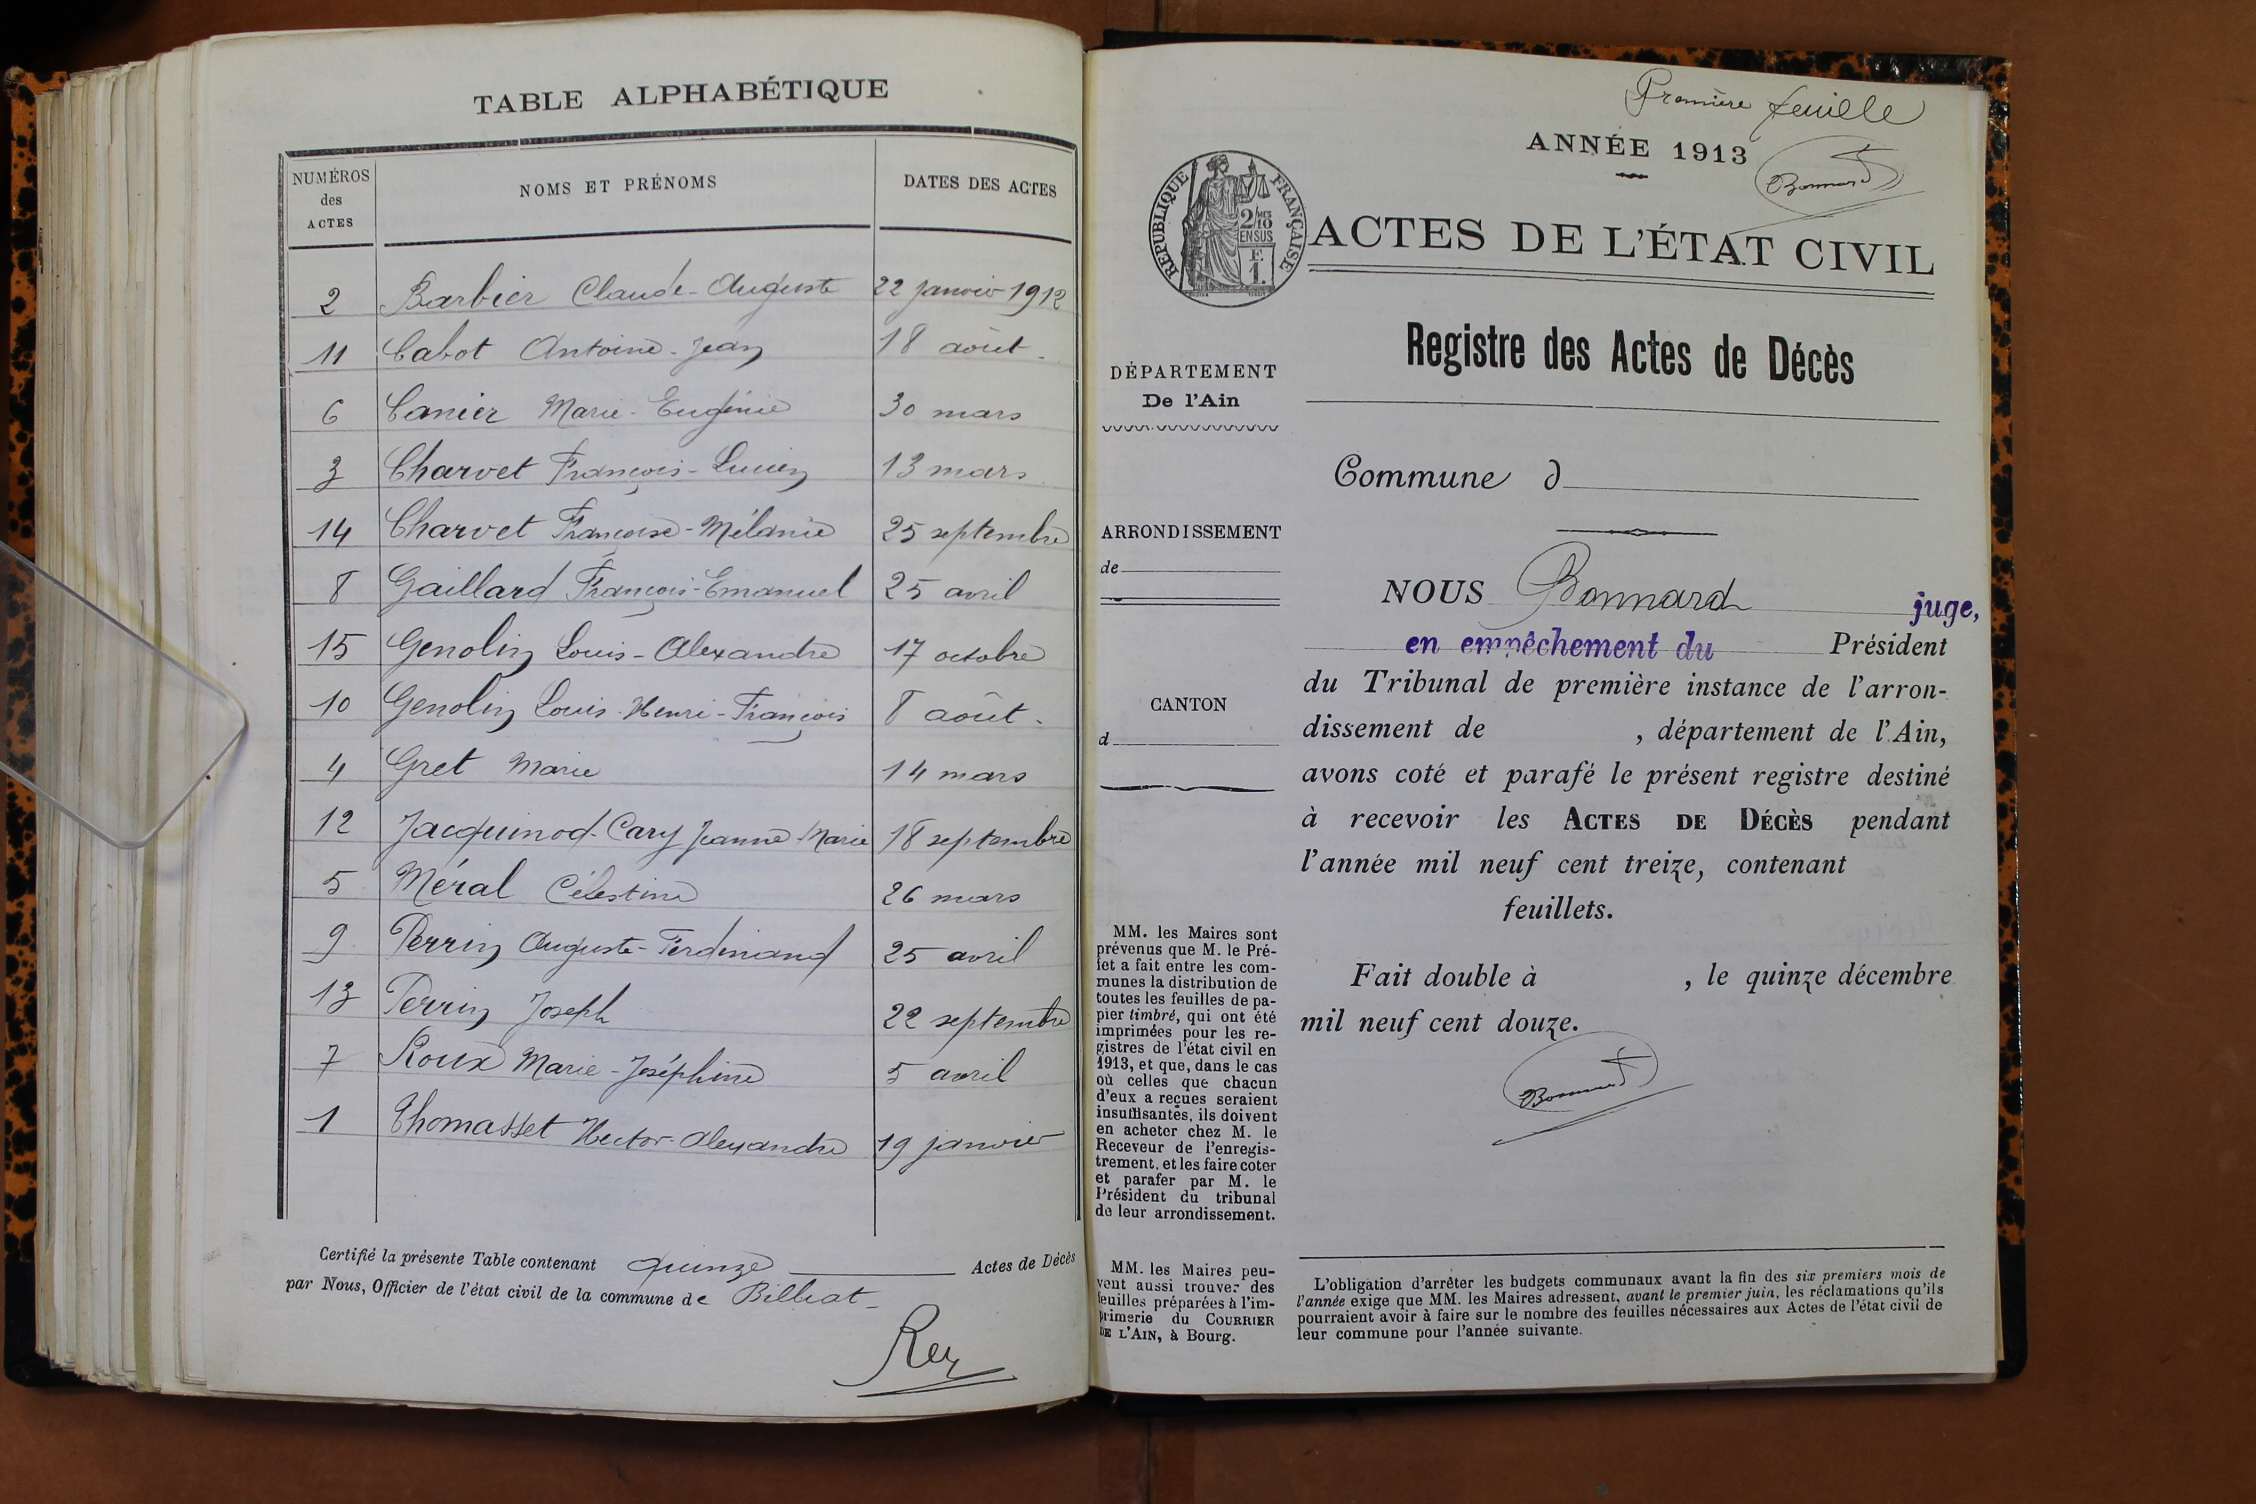 TABLE ALPHABÉTIQUE
NUMÉROS
des
ACTES
NOMS ET PRÉNOMS
DATES DES ACTES
2 Barbier Claude-Auguste 22 janvier 1912
11 Cabot Antoine-Jean 18 août
6 Canier Marie-Eugénie 30 mars
3 Charvet François-Lucien 13 mars
14 Charvet Françoise-Mélanie 25 septembre
8 Gaillard François-Emanuel 25 avril
15 Genolin Louis-Alexandre 17 octobre
10 Genolin Louis-Henri-François 8 août
4 Gret Marie 14 mars
12 Jacquinod-Cary Jeanne-Marie 18 septembre
5 Méral Célestine 26 mars
9 Perrin Auguste-Ferdinand 25 avril
13 Perrin Joseph 22 septembre
7 Roux Marie-Joséphine 5 avril
1 Thomasset Hector-Alexandre 19 janvier
Certifié la présente Table contenant quinze Actes de Décès
par Nous, Officier de l'état civil de la commune de Billiat
Rey
Première feuille
ANNÉE 1913
Bonnard
RÉPUBLIQUE FRANÇAISE
2/10MES
EN SUS
F.
1.
ACTES DE L'ÉTAT CIVIL
Registre des Actes de Décès
DÉPARTEMENT
De l'Ain
Commune d
ARRONDISSEMENT
de
CANTON
d
MM. les Maires sont
prévenus que M. le Pré-
fet a fait entre les com-
munes la distribution de
toutes les feuilles de pa-
pier timbré, qui ont été
imprimées pour les re-
gistres de l'état civil en
1913, et que, dans le cas
où celles que chacun
d'eux a reçues seraient
insuffisantes, ils doivent
en acheter chez M. le
Receveur de l'enregis-
trement, et les faire coter
et parafer par M. le
Président du tribunal
de leur arrondissement.
MM. les Maires peu-
vent aussi trouver des
feuilles préparées à l'im-
primerie du COURRIER
DE L'AIN, à Bourg.
NOUS Bonnard juge,
en empêchement du Président
du Tribunal de première instance de l'arron-
dissement de , département de l'Ain,
avons coté et parafé le présent registre destiné
à recevoir les ACTES DE DÉCÈS pendant
l'année mil neuf cent treize, contenant
feuillets.
Fait double à , le quinze décembre
mil neuf cent douze.
Bonnard
L'obligation d'arrêter les budgets communaux avant la fin des six premiers mois de
l'année exige que MM. les Maires adressent, avant le premier juin, les réclamations qu'ils
pourraient avoir à faire sur le nombre des feuilles nécessaires aux Actes de l'état civil de
leur commune pour l'année suivante.